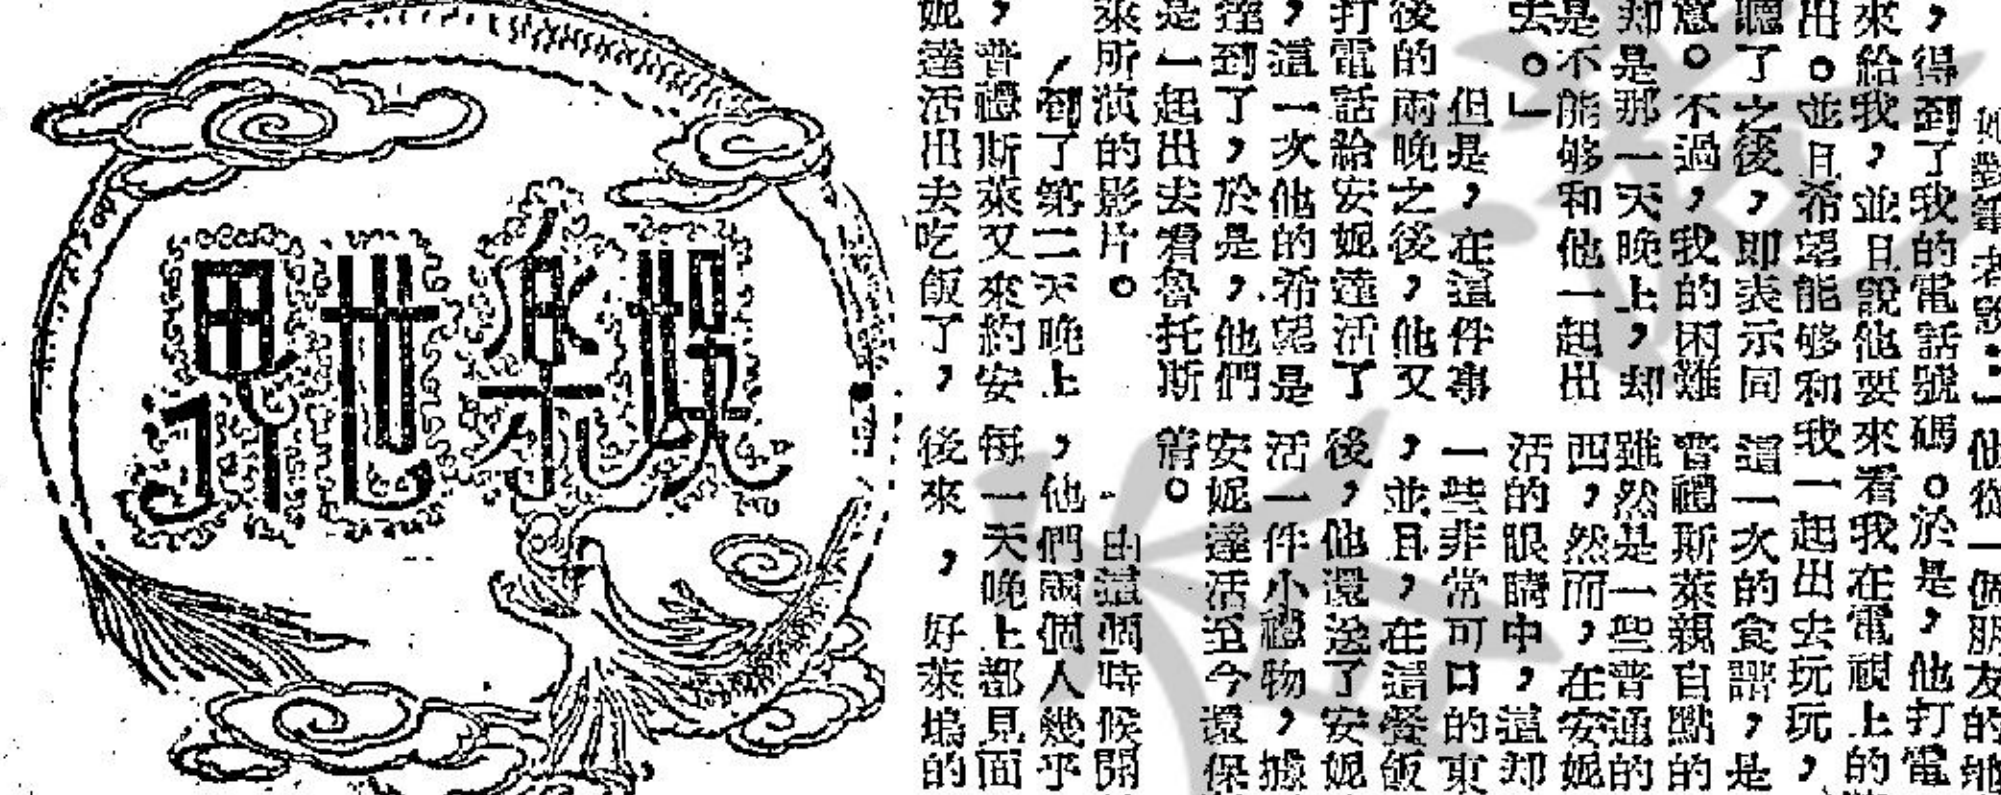 她對筆者說：「他從一個朋友的地
，得到了我的電話號碼。於是，他打電
來給我，並且說他要來看我在電視上的
出。並且希望能够和我一起出去玩玩，
聽了之後，即表示同
意。不過，我的困難
却是那一天晚上，却
是不能够和他一起出
去。」
但是，在這件事
後的兩晚之後，他又
打電話給安妮達活了
，這一次他的希望是
達到了，於是，他們
是一起出去看魯托斯
來所演的影片。
到了第二天晚上
，普禮斯萊又來約安
妮達活出去吃飯了，
這一次的食譜，是
普禮斯萊親自點的
雖然是一些普通的
西，然而，在安妮
活的眼睛中，這却
一些非常可口的東
，並且，在這餐飯
後，他還送了安妮
活一件小禮物，據
安妮達活至今還保
着。
由這個時候開
，他們兩個人幾乎
每一天晚上都見面
後來，好萊塢的
娛樂世界